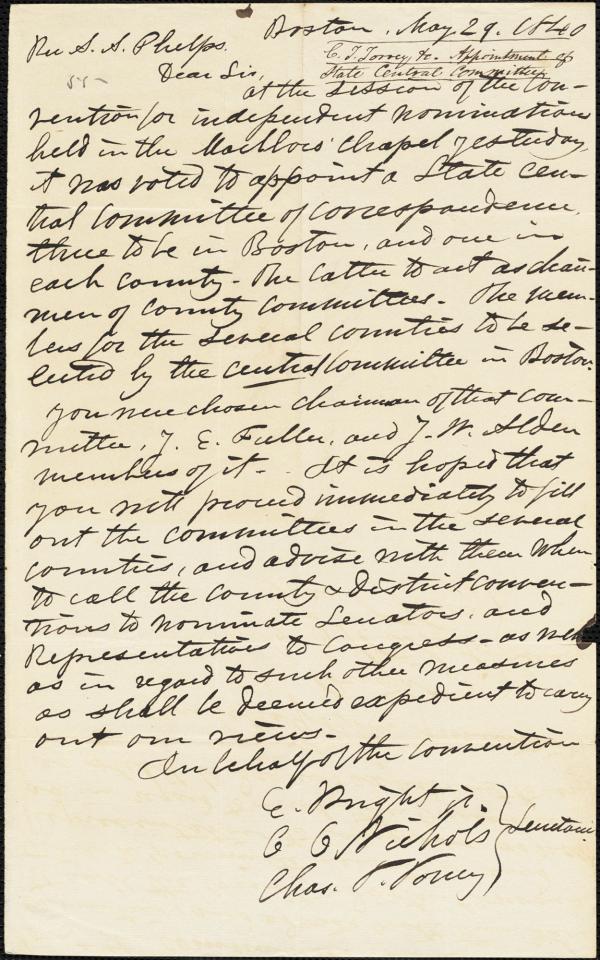 Boston, May 29. 1840
Rev. A. A. Phelps.
C. T. Torrey, &c. Appointment of
State Central Committee
55-
Dear Sir,
at the session of the con-
vention for independent nominations
held in the Marlboro' chapel yesterday,
it was voted to appoint a State cen-
tral committee of correspondence,
three to be in Boston, and one in
each county - the latter to act as chair-
men of county committees. The mem-
bers for the several counties to be se-
lected by the central committee in Boston.
You were chosen chairman of that com-
mittee, J. E. Fuller, and J. W. Alden
members of it. - It is hoped that
you will proceed immediately to fill
out the committees in the several
counties, and advise with them when
to call the county & district conven-
tions to nominate Senators, and
Representatives to Congress - as well
as in regard to such other measures
as shall be deemed expedient to carry
out our views.
In behalf of the convention
E. Wright jr.
C C Nichols
Secretaries
Chas. T. Torrey